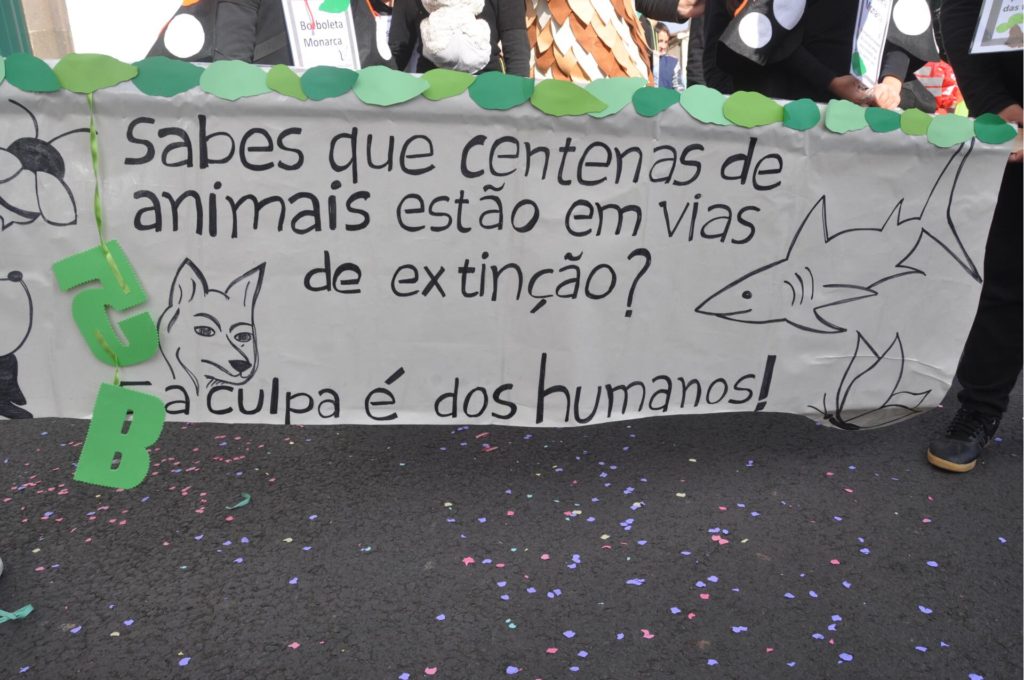 Borboleta
Monarca
das
Sabes que centenas de
animais estão em vias
de extinção?
E a culpa é dos humanos!
5º
B